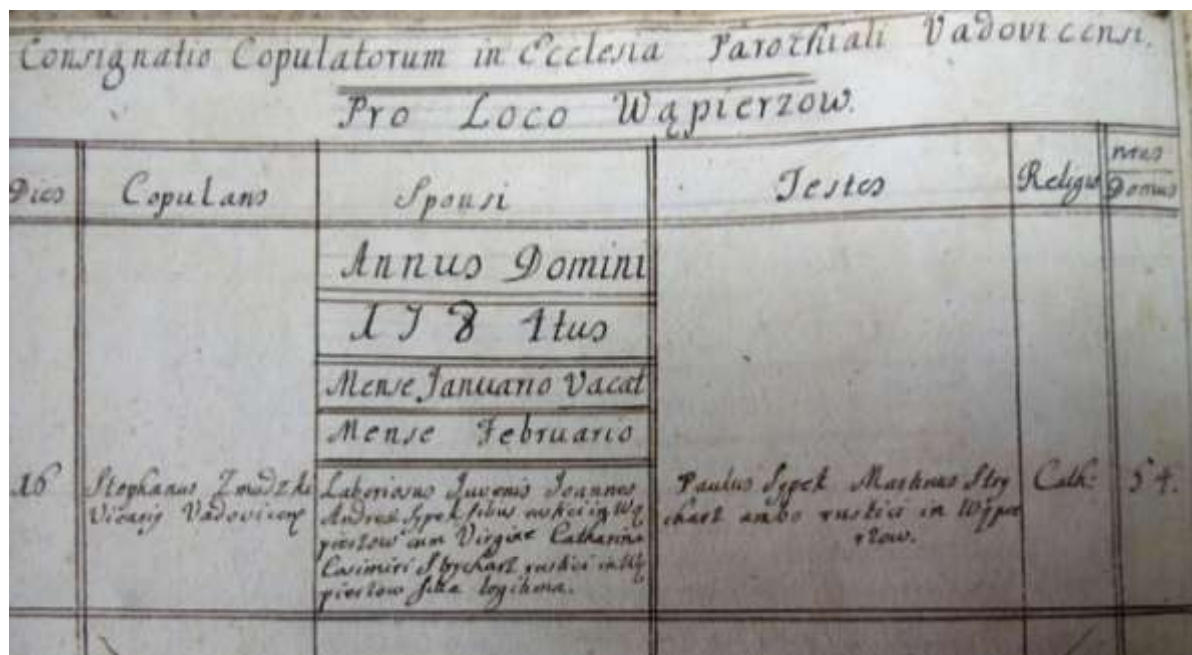 Consignatio Copulatorum in Ecclesia Parochiali Vadovicensi.
Pro Loco Wąpierzow.
Dies
Copulans
Sponsi
Testes
Religio
nrus
Domus
Annus Domini
178 1tus
Mense Januario Vacat
Mense Februario
16
Stephanus Zmudzki
Vicarig Vadovicens
Laboriosus Juvenis Joannes
Andreæ Sypek filius rustici in Wą
pierzow cum Virgine Catharina
Casimiri Strychart rustici in Wą
pierzow filia legitima.
Paulus Sypek Martinus Stry
chart ambo rustici in Wąpie
rzow.
Cath:
54.